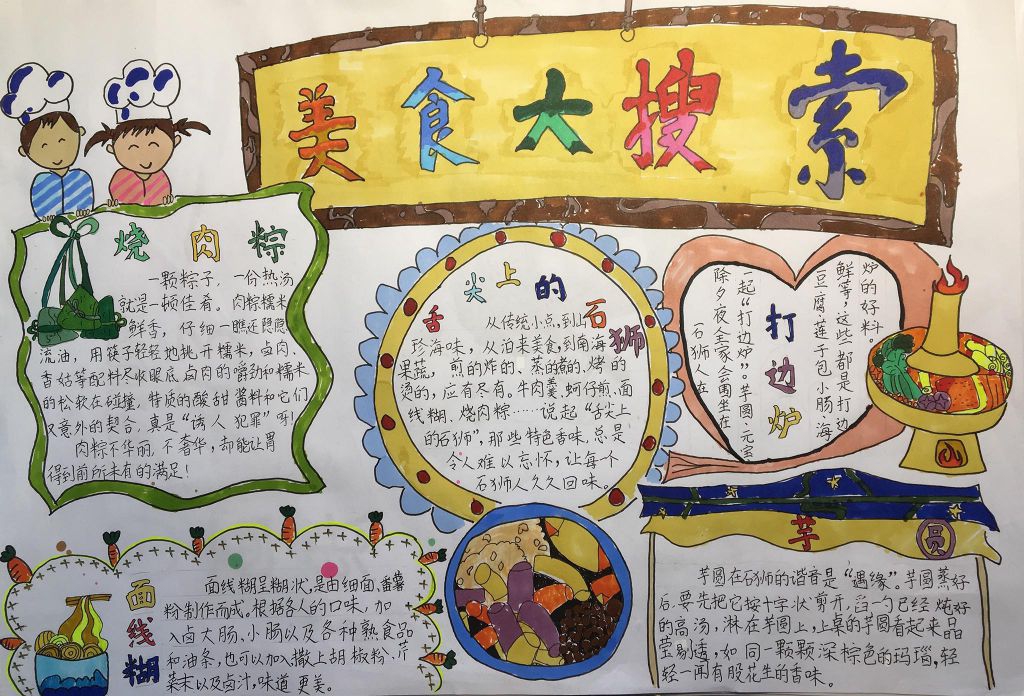 美食大搜索
烧肉粽
一颗粽子，一份热汤
就是一顿佳肴。肉粽糯米
鲜香，仔细一瞧还隐隐
流油，用筷子轻轻地挑开糯米，卤肉、
香姑等配料尽收眼底卤肉的嚼劲和糯米
的松软在碰撞，特质的酸甜酱料和它们
又意外的契合，真是“诱人犯罪”呀！
肉粽不华丽，不奢华，却能让胃
得到前所未有的满足！
舌尖上的石狮
从传统小点，到山
珍海味，从泊来美食，到南海
果蔬，煎的炸的、蒸的煮的、烤的
烫的，应有尽有。牛肉羹、蚵仔煎、面
线糊、烧肉粽……说起“舌尖上
的石狮”，那些特色香味，总是
令人难以忘怀，让每个
石狮人久久回味。
打边炉
石狮人在
除夕夜全家会围坐在
一起“打边炉”。芋圆、元宝
豆腐、莲子包、小肠、海
鲜等，这些都是打边
炉的好料。
面线糊
面线糊呈糊状，是由细面、番薯
粉制作而成。根据各人的口味，加
入卤大肠、小肠以及各种熟食品
和油条，也可以加入撒上胡椒粉、芹
菜末以及卤汁，味道更美。
芋圆
芋圆在石狮的谐音是“遇缘”。芋圆蒸好
后，要先把它按十字状剪开，舀一勺已经炖好
的高汤，淋在芋圆上，上桌的芋圆看起来晶
莹剔透，如同一颗颗深棕色的玛瑙，轻
轻一闻有股花生的香味。